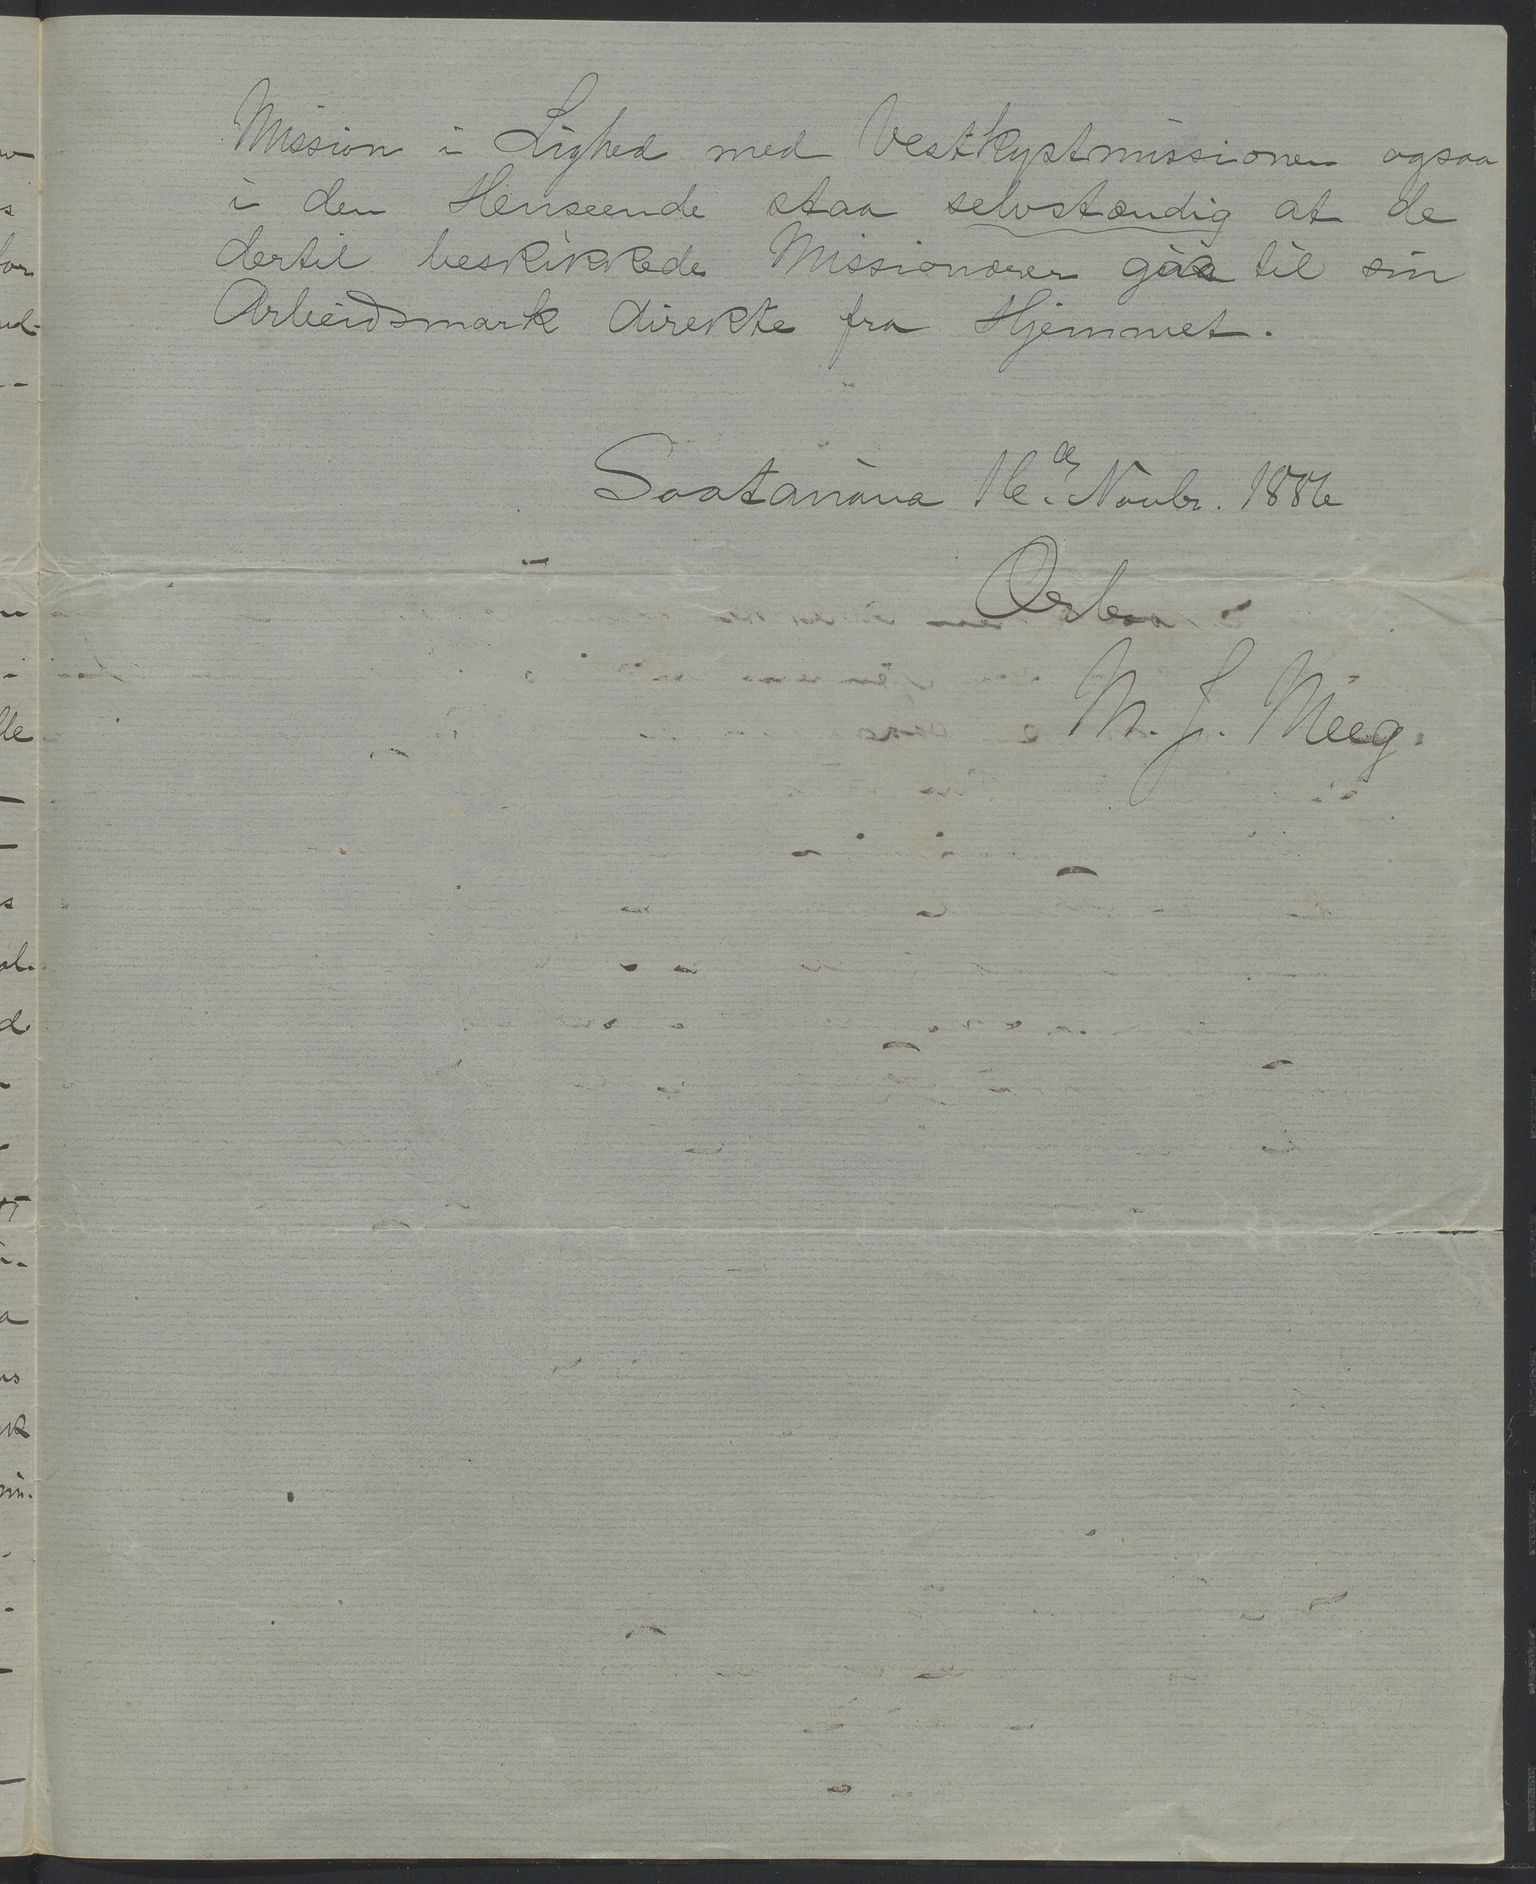 Mission i Lighed med Vestkystmissionen ogsaa
i den Henseende staa selvstændig at de
dertil beskikkede Missionærer gaa til sin
Arbeidsmark direkte fra Hjemmet.
Soatanàna 16de Novbr. 1886
Ærb.
M. J. Meeg.